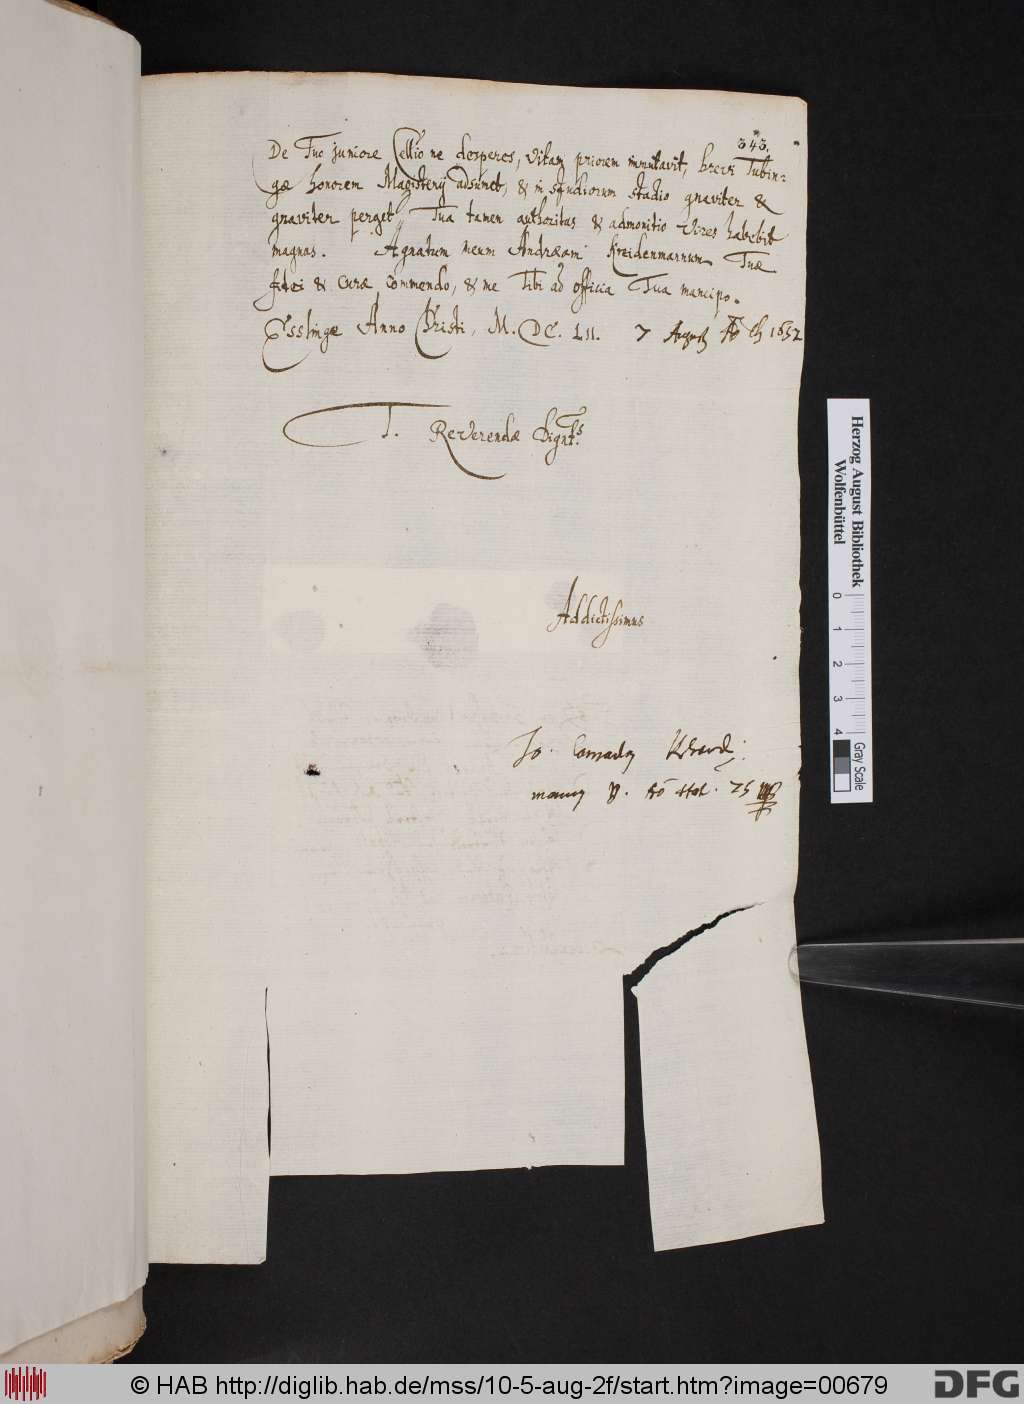 343.
De Tuo juniore Cellio ne desperes, vitam priorem immutavit, brevi Tubin-
gæ honorem Magisterij adsumet, & in studiorum stadio gnaviter &
graviter perget, Tua tamen authoritas & admonitio vires habebit
magnas. Agnatum meum Andræam Kreidenmannum Tuæ
fidei & curæ commendo, & me Tibi ad officia Tua mancipo.
Esslingæ Anno Christi, M. DC. LII. 7 1652
T. Reverendæ Dignt.s
Addictissimus
Jo.
Herzog August Bibliothek
Wolfenbüttel
0 1 2 3 4
Gray Scale
© HAB http://diglib.hab.de/mss/10-5-aug-2f/start.htm?image=00679
DFG